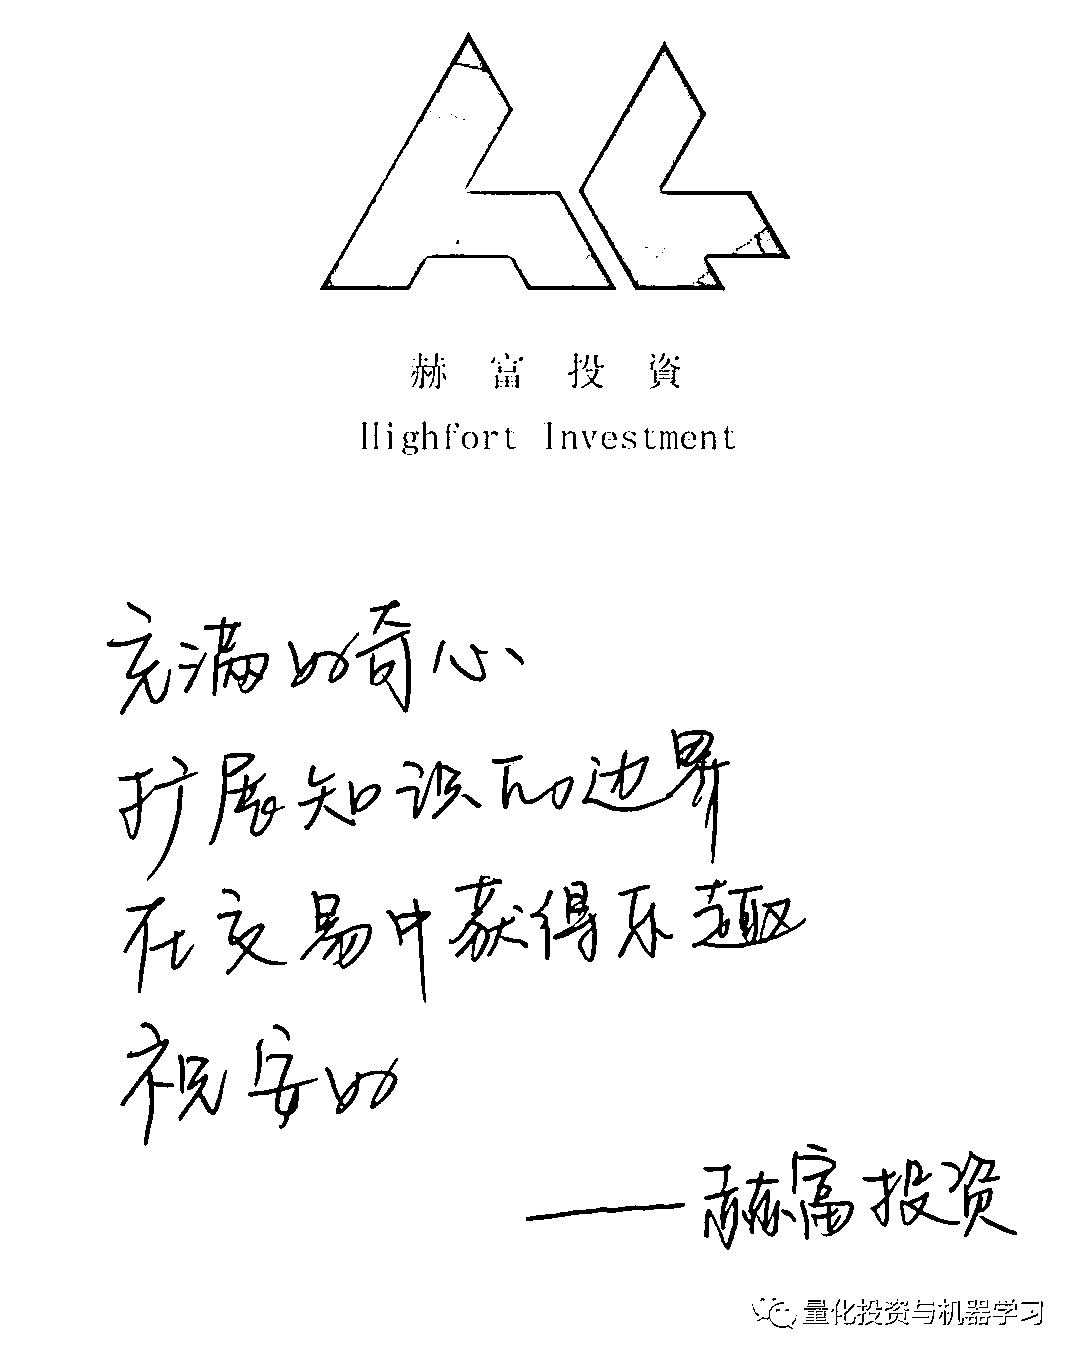 赫富投資
Highfort Investment
充满好奇心
扩展知识的边界
在交易中获得乐趣
祝安好
——赫富投资
量化投资与机器学习